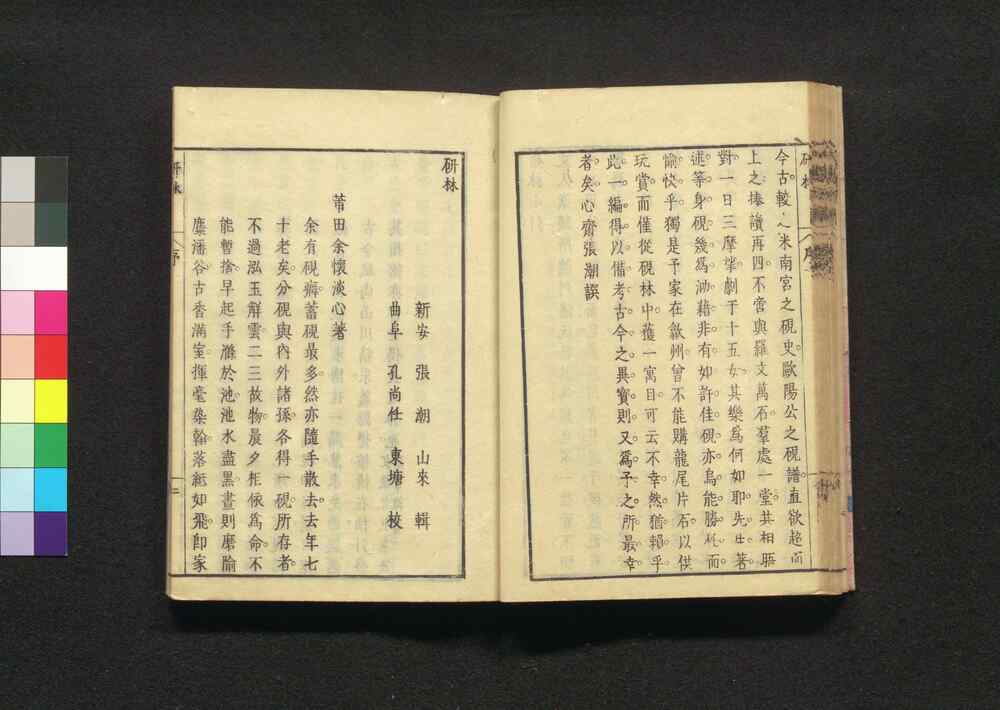 今古較之米南宮之硯史歐陽公之硯譜直欲超而
上之捧讀再四不啻與羅文萬石羣處一堂其相晤
對一日三摩挲劇于十五女其樂爲何如耶先生著
述等身硯幾爲泐藉非有如許佳硯亦烏能勝任而
愉快乎獨是予家在歙州曾不能購龍尾片石以供
玩賞而僅從硯林中獲一寓目可云不幸然猶賴乎
此一編得以備考古今之異寶則又爲予之所最幸
者矣心齋張潮譔
硏林
新安 張 潮 山來 輯
曲阜 孔尚任 東塘 校
莆田余懷淡心著
余有硯癖蓄硯最多然亦隨手散去去年七
十老矣分硯與內外諸孫各得一硯所存者
不過泓玉觧雲二三故物晨夕相依爲命不
能暫捨早起手滌於池池水盡黑晝則磨隃
麋潘谷古香滿室揮毫染翰落紙如飛卽家